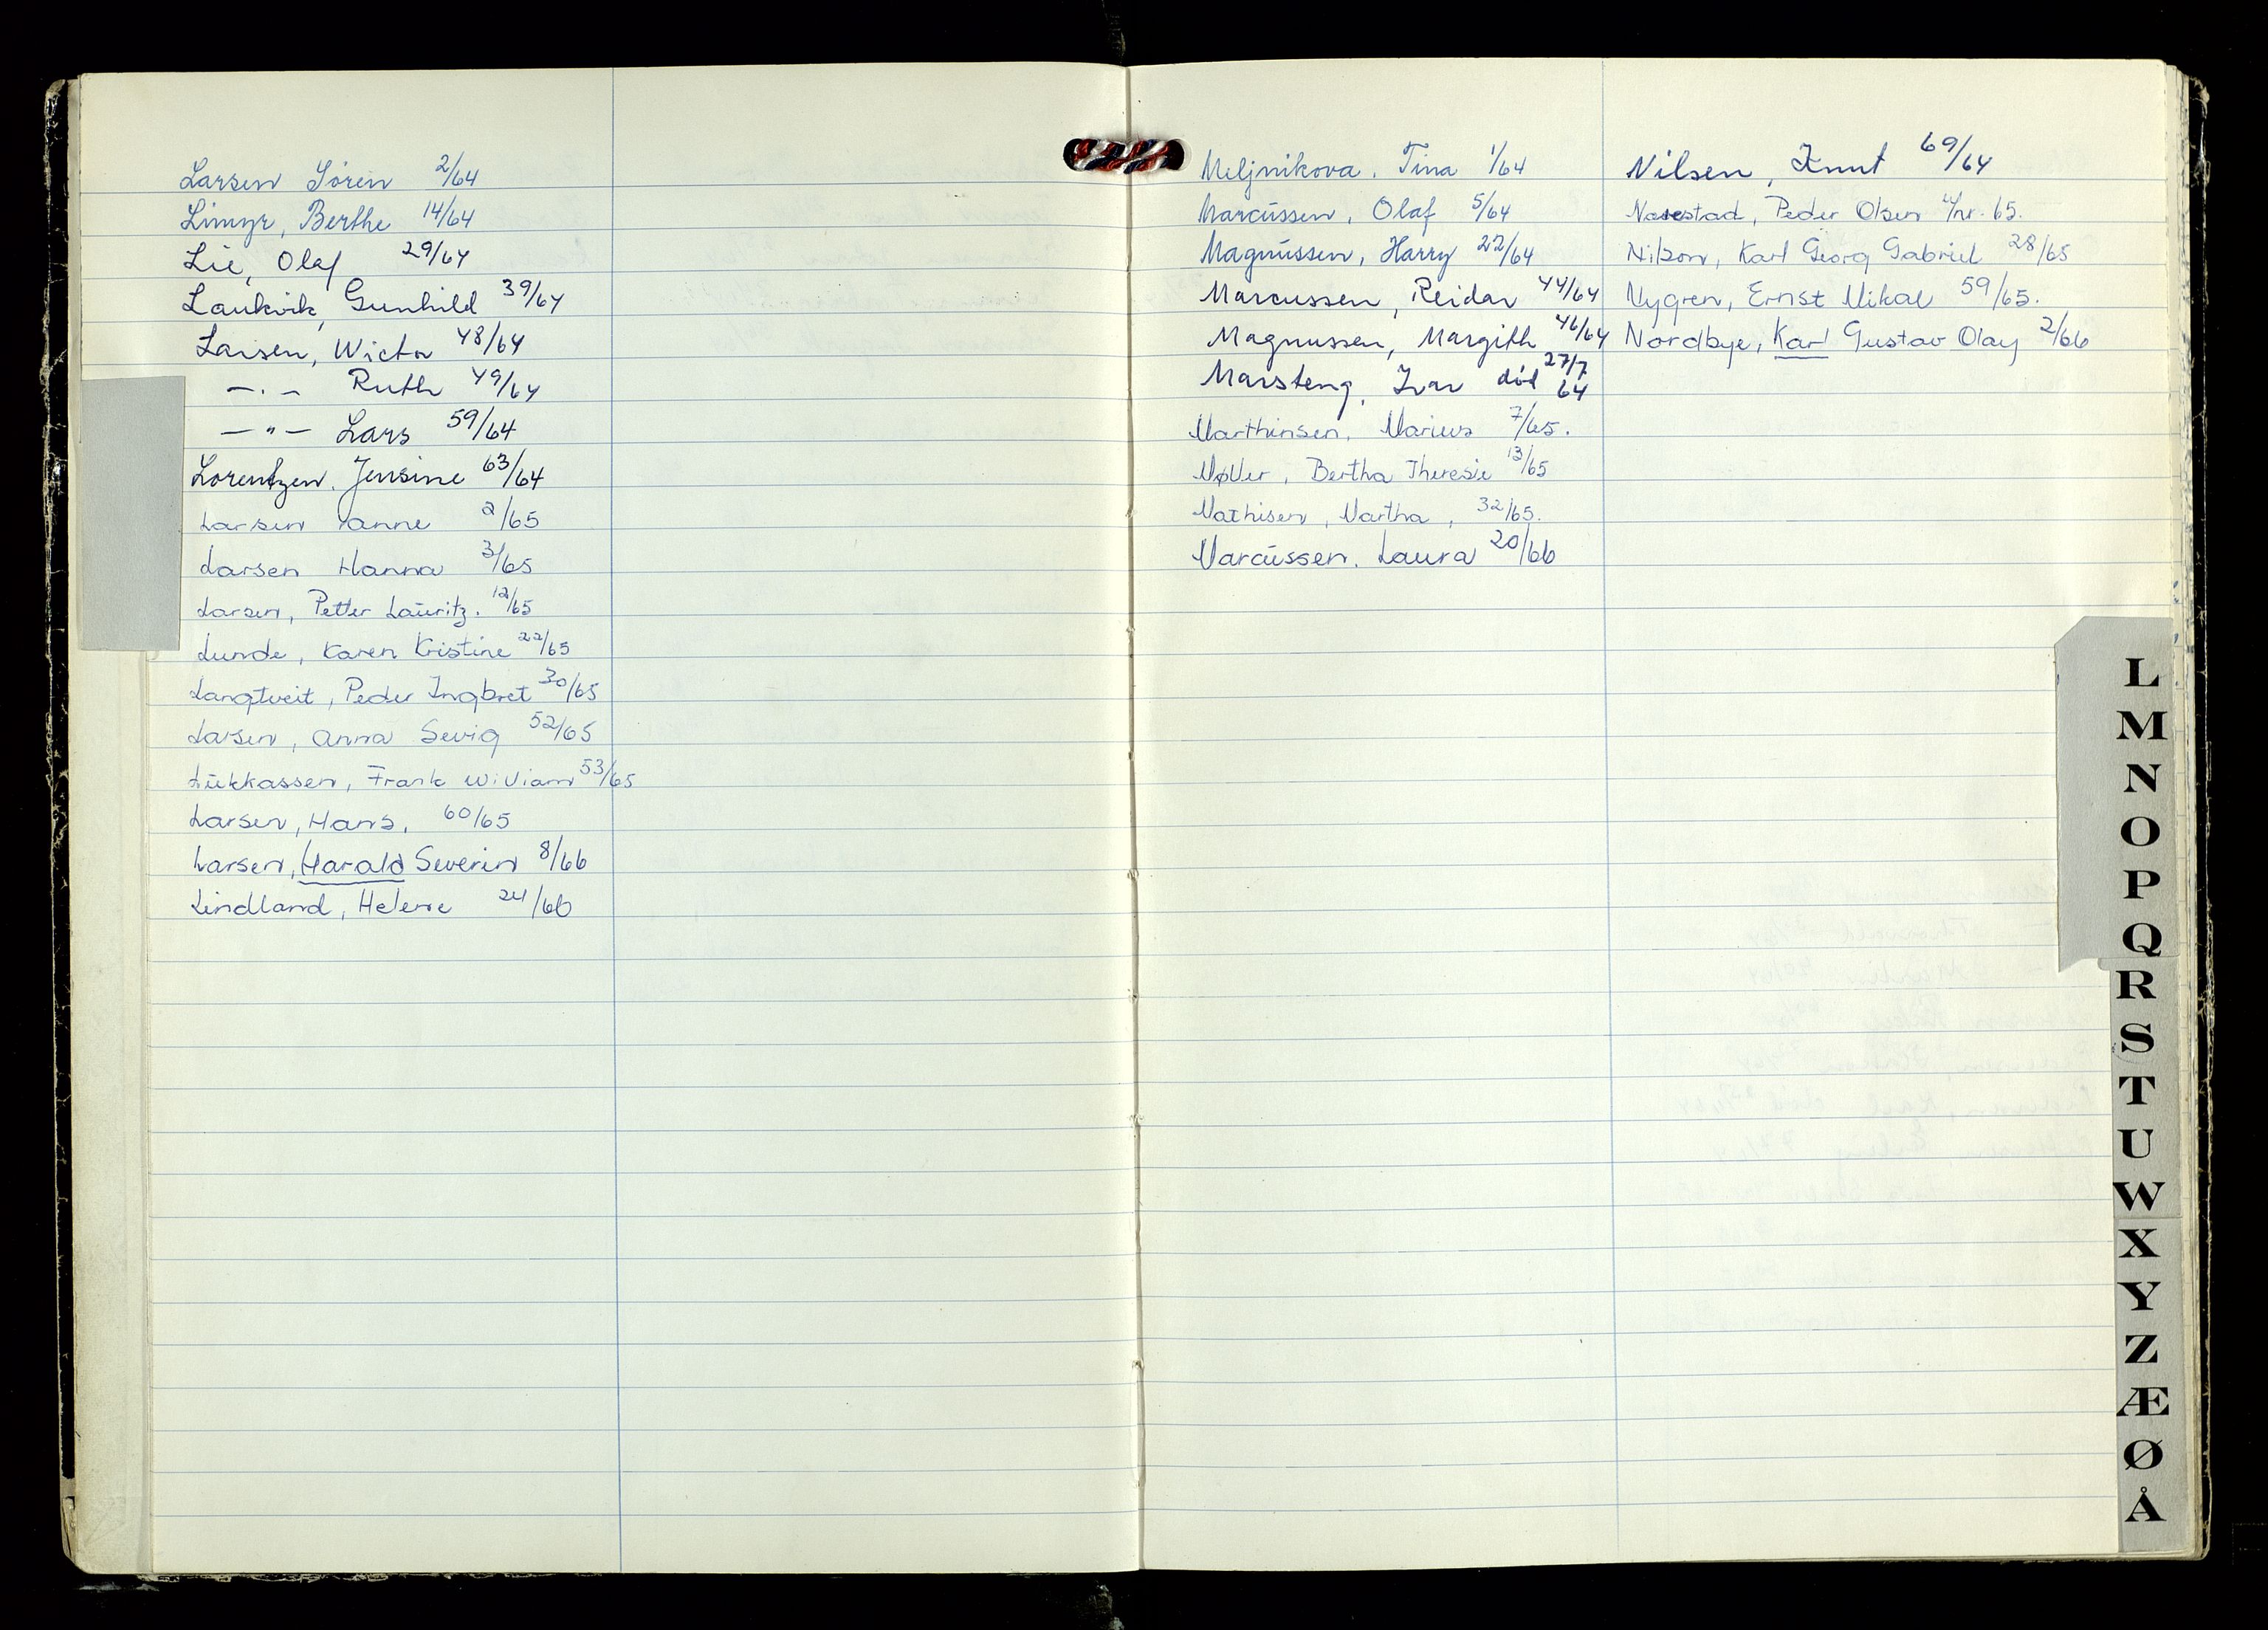 Larsen Sören 2/64
Limyr, Berthe 14/64
Lie, Olaf 29/64
Laukvik, Gunhild 39/64
Larsen, Victor 48/64
—.— Ruth 49/64
—"— Lars 59/64
Lorentzen. Jensine 63/64
Larsen anne 2/65
Larsen Hanna 3/65
Larsen, Petter Lauritz. 12/65
Lunde, Karen Kristine 22/65
Langtveit, Peder Ingbret 30/65
Larsen, Anna Sevig 52/65
Lukkassen, Frank William 53/65
Larsen, Hans, 60/65
Larsen, Harald Severin 8/66
Lindland, Helene 24/66
Meljnikova. Tina 1/64
Marcussen, Olaf 5/64
Magnussen, Harry 22/64
Marcussen, Reidar 44/64
Magnussen, Margith 46/64
Marsteng, Ivar død 27/7 64
Marthinsen, Marius 7/65.
Møller, Bertha Theresie 13/65
Mathisen, Martha, 32/65.
Marcussen. Laura 20/66
Nilsen, Knut 69/64
Navestad, Peder Olsen 4/nr. 65.
Nilson, Karl Georg Gabriel 28/65
Nygren, Ernst Mikal 59/65.
Nordbye, Karl Gustav Olay 2/66
L
M
N
O
P
Q
R
S
T
U
W
X
Y
Z
Æ
Ø
Å